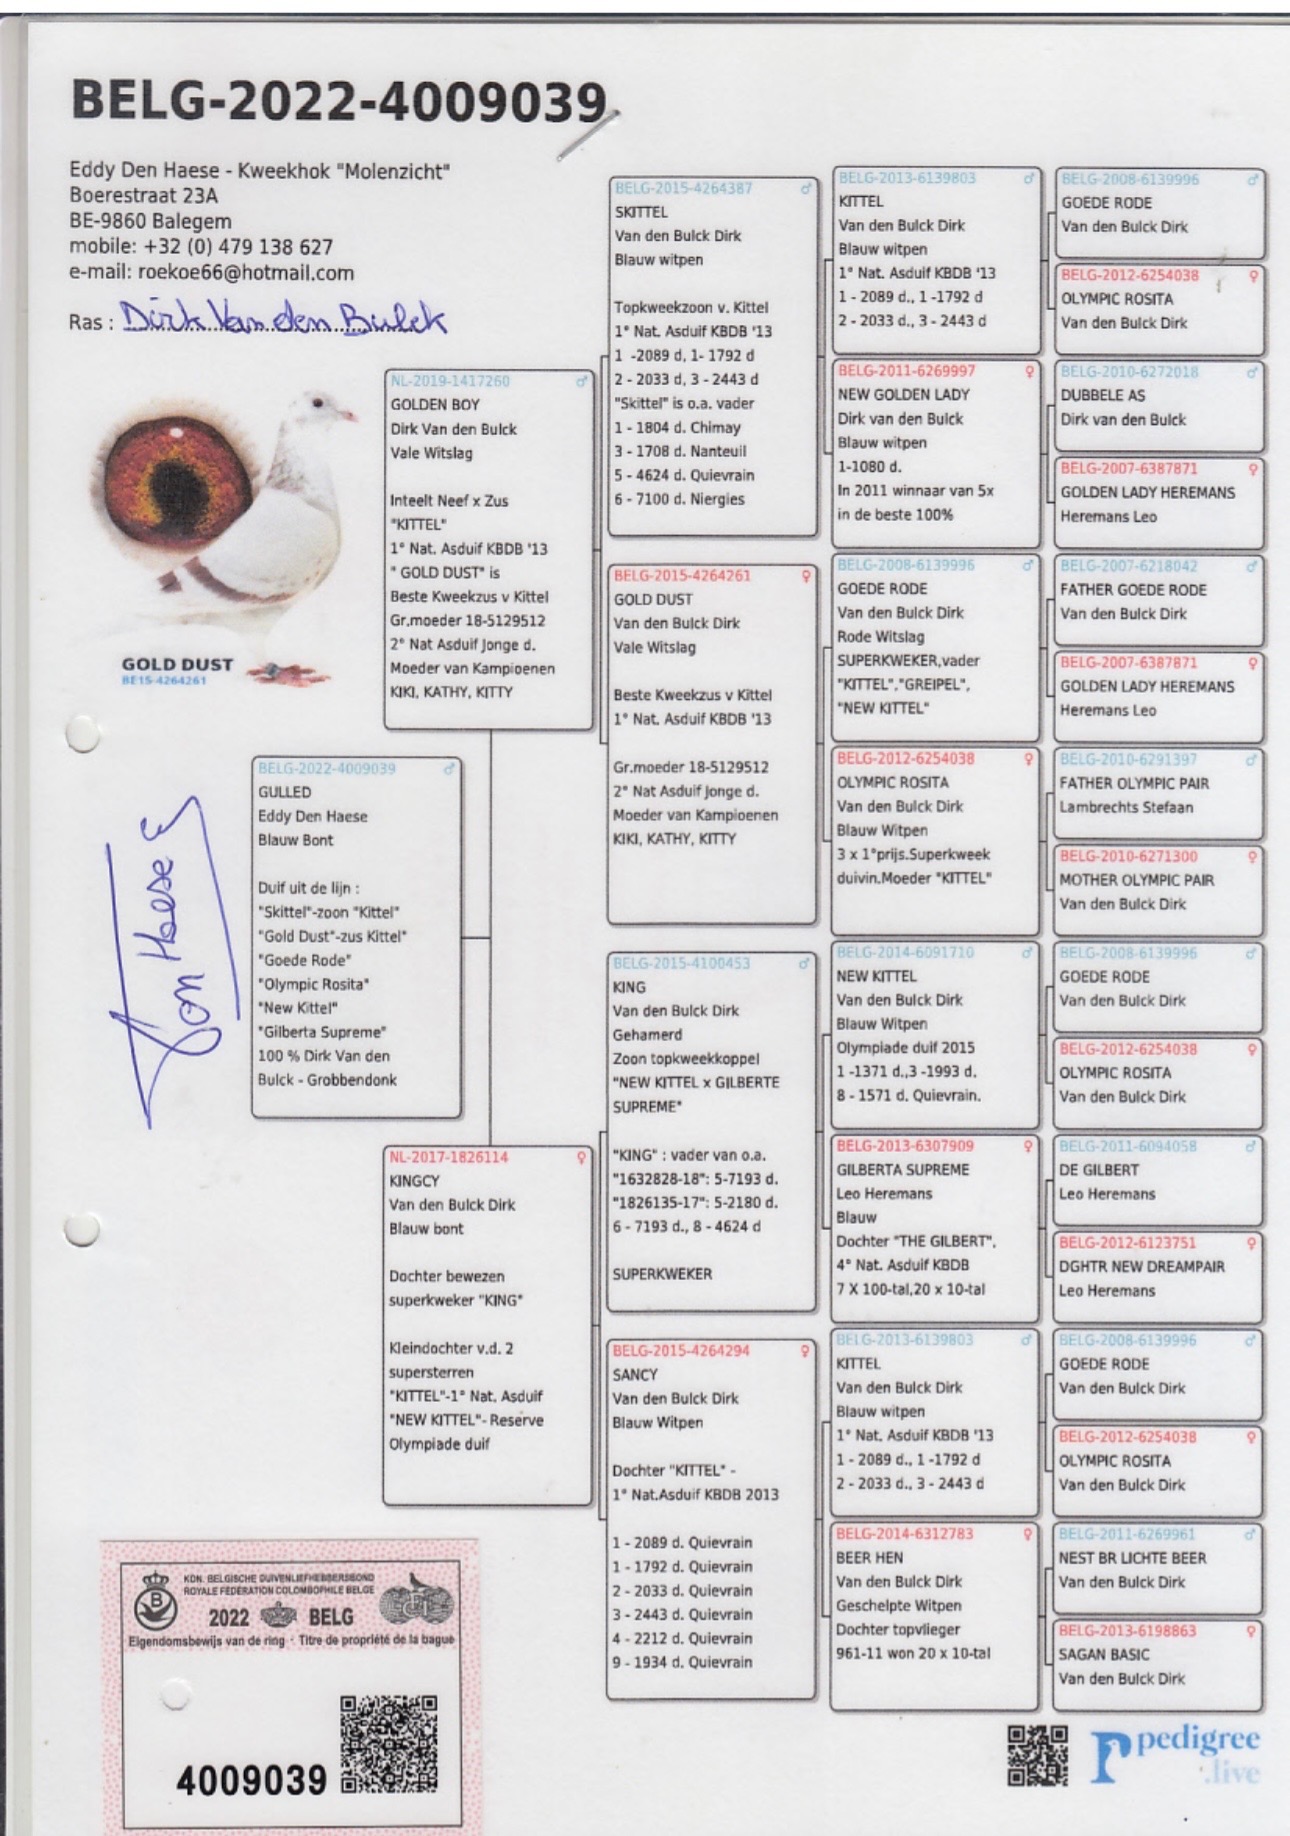 BELG-2022-4009039
Eddy Den Haese - Kweekhok "Molenzicht"
Boerestraat 23A
BE-9860 Balegem
mobile: +32 (0) 479 138 627
e-mail: roekoe66@hotmail.com
Ras : Dirk Van den Bulck
GOLD DUST
BE15-4264261
BELG-2022-4009039 ♂
GULLED
Eddy Den Haese
Blauw Bont
Duif uit de lijn :
"Skittel"-zoon "Kittel"
"Gold Dust"-zus Kittel"
"Goede Rode"
"Olympic Rosita"
"New Kittel"
"Gilberta Supreme"
100 % Dirk Van den
Bulck - Grobbendonk
NL-2019-1417260 ♂
GOLDEN BOY
Dirk Van den Bulck
Vale Witslag
Inteelt Neef x Zus
"KITTEL"
1° Nat. Asduif KBDB '13
" GOLD DUST" is
Beste Kweekzus v Kittel
Gr.moeder 18-5129512
2° Nat Asduif Jonge d.
Moeder van Kampioenen
KIKI, KATHY, KITTY
NL-2017-1826114 ♀
KINGCY
Van den Bulck Dirk
Blauw bont
Dochter bewezen
superkweker "KING"
Kleindochter v.d. 2
supersterren
"KITTEL"-1° Nat. Asduif
"NEW KITTEL"- Reserve
Olympiade duif
BELG-2015-4264387 ♂
SKITTEL
Van den Bulck Dirk
Blauw witpen
Topkweekzoon v. Kittel
1° Nat. Asduif KBDB '13
1 -2089 d, 1- 1792 d
2 - 2033 d, 3 - 2443 d
"Skittel" is o.a. vader
1 - 1804 d. Chimay
3 - 1708 d. Nanteuil
5 - 4624 d. Quievrain
6 - 7100 d. Niergies
BELG-2015-4264261 ♀
GOLD DUST
Van den Bulck Dirk
Vale Witslag
Beste Kweekzus v Kittel
1° Nat. Asduif KBDB '13
Gr.moeder 18-5129512
2° Nat Asduif Jonge d.
Moeder van Kampioenen
KIKI, KATHY, KITTY
BELG-2015-4100453 ♂
KING
Van den Bulck Dirk
Gehamerd
Zoon topkweekkoppel
"NEW KITTEL x GILBERTE
SUPREME"
"KING" : vader van o.a.
"1632828-18": 5-7193 d.
"1826135-17": 5-2180 d.
6 - 7193 d., 8 - 4624 d
SUPERKWEKER
BELG-2015-4264294 ♀
SANCY
Van den Bulck Dirk
Blauw Witpen
Dochter "KITTEL" -
1° Nat.Asduif KBDB 2013
1 - 2089 d. Quievrain
1 - 1792 d. Quievrain
2 - 2033 d. Quievrain
3 - 2443 d. Quievrain
4 - 2212 d. Quievrain
9 - 1934 d. Quievrain
BELG-2013-6139803 ♂
KITTEL
Van den Bulck Dirk
Blauw witpen
1° Nat. Asduif KBDB '13
1 - 2089 d., 1 -1792 d
2 - 2033 d., 3 - 2443 d
BELG-2011-6269997 ♀
NEW GOLDEN LADY
Dirk van den Bulck
Blauw witpen
1-1080 d.
In 2011 winnaar van 5x
in de beste 100%
BELG-2008-6139996 ♂
GOEDE RODE
Van den Bulck Dirk
Rode Witslag
SUPERKWEKER,vader
"KITTEL","GREIPEL",
"NEW KITTEL"
BELG-2012-6254038 ♀
OLYMPIC ROSITA
Van den Bulck Dirk
Blauw Witpen
3 x 1°prijs.Superkweek
duivin.Moeder "KITTEL"
BELG-2014-6091710 ♂
NEW KITTEL
Van den Bulck Dirk
Blauw Witpen
Olympiade duif 2015
1 -1371 d.,3 -1993 d.
8 - 1571 d. Quievrain.
BELG-2013-6307909 ♀
GILBERTA SUPREME
Leo Heremans
Blauw
Dochter "THE GILBERT",
4° Nat. Asduif KBDB
7 X 100-tal,20 x 10-tal
BELG-2013-6139803 ♂
KITTEL
Van den Bulck Dirk
Blauw witpen
1° Nat. Asduif KBDB '13
1 - 2089 d., 1 -1792 d
2 - 2033 d., 3 - 2443 d
BELG-2014-6312783 ♀
BEER HEN
Van den Bulck Dirk
Geschelpte Witpen
Dochter topvlieger
961-11 won 20 x 10-tal
BELG-2008-6139996 ♂
GOEDE RODE
Van den Bulck Dirk
BELG-2012-6254038 ♀
OLYMPIC ROSITA
Van den Bulck Dirk
BELG-2010-6272018 ♂
DUBBELE AS
Dirk van den Bulck
BELG-2007-6387871 ♀
GOLDEN LADY HEREMANS
Heremans Leo
BELG-2007-6218042 ♂
FATHER GOEDE RODE
Van den Bulck Dirk
BELG-2007-6387871 ♀
GOLDEN LADY HEREMANS
Heremans Leo
BELG-2010-6291397 ♂
FATHER OLYMPIC PAIR
Lambrechts Stefaan
BELG-2010-6271300 ♀
MOTHER OLYMPIC PAIR
Van den Bulck Dirk
BELG-2008-6139996 ♂
GOEDE RODE
Van den Bulck Dirk
BELG-2012-6254038 ♀
OLYMPIC ROSITA
Van den Bulck Dirk
BELG-2011-6094058 ♂
DE GILBERT
Leo Heremans
BELG-2012-6123751 ♀
DGHTR NEW DREAMPAIR
Leo Heremans
BELG-2008-6139996 ♂
GOEDE RODE
Van den Bulck Dirk
BELG-2012-6254038 ♀
OLYMPIC ROSITA
Van den Bulck Dirk
BELG-2011-6269961 ♂
NEST BR LICHTE BEER
Van den Bulck Dirk
BELG-2013-6198863 ♀
SAGAN BASIC
Van den Bulck Dirk
KON. BELGISCHE DUIVENLIEFHEBBERSBOND
ROYALE FEDERATION COLOMBOPHILE BELGE
B
2022 BELG
Eigendomsbewijs van de ring · Titre de propriété de la bague
4009039
pedigree
.live